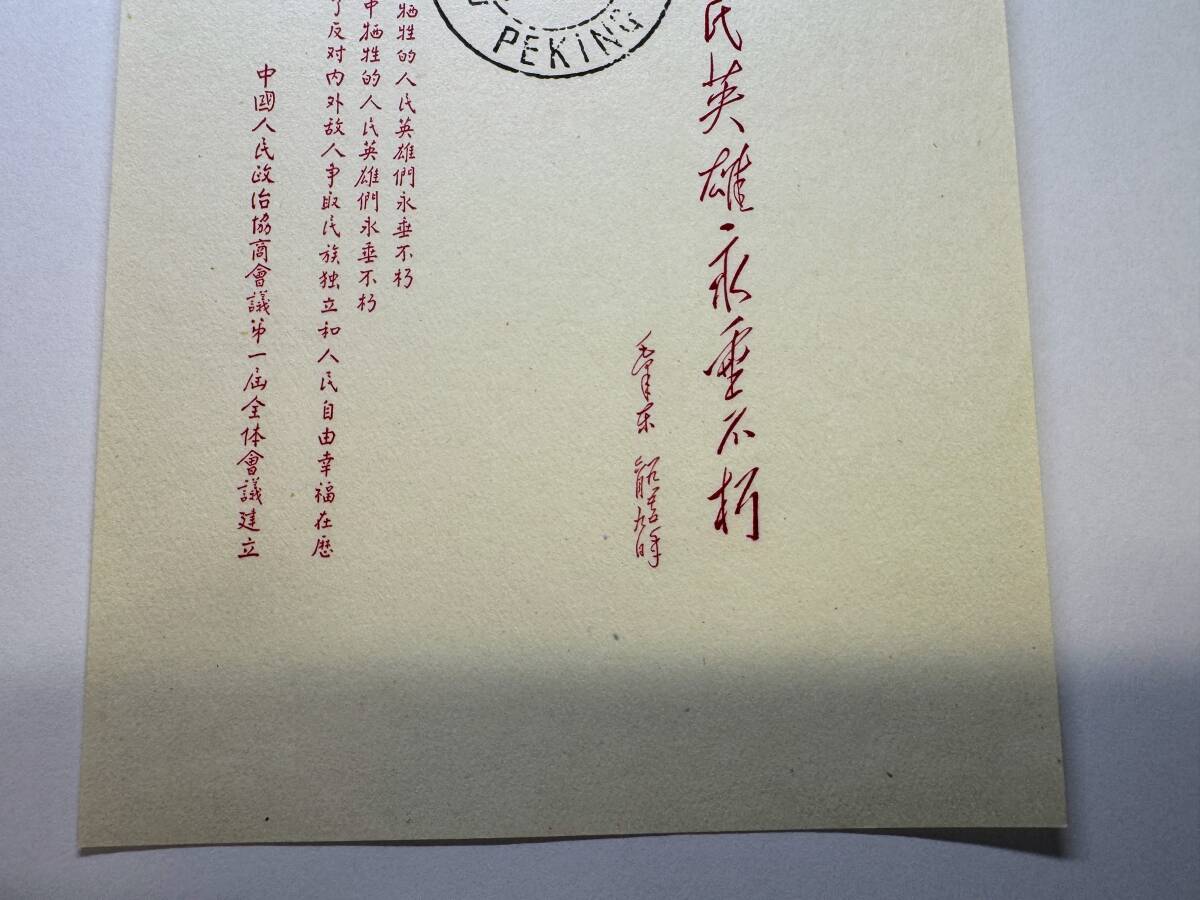 民英雄永垂不朽
毛澤東
PEKING
牺牲的人民英雄們永垂不朽
中牺牲的人民英雄們永垂不朽
了反对内外敌人争取民族独立和人民自由幸福在歷
中國人民政治協商會議第一屆全体會議建立